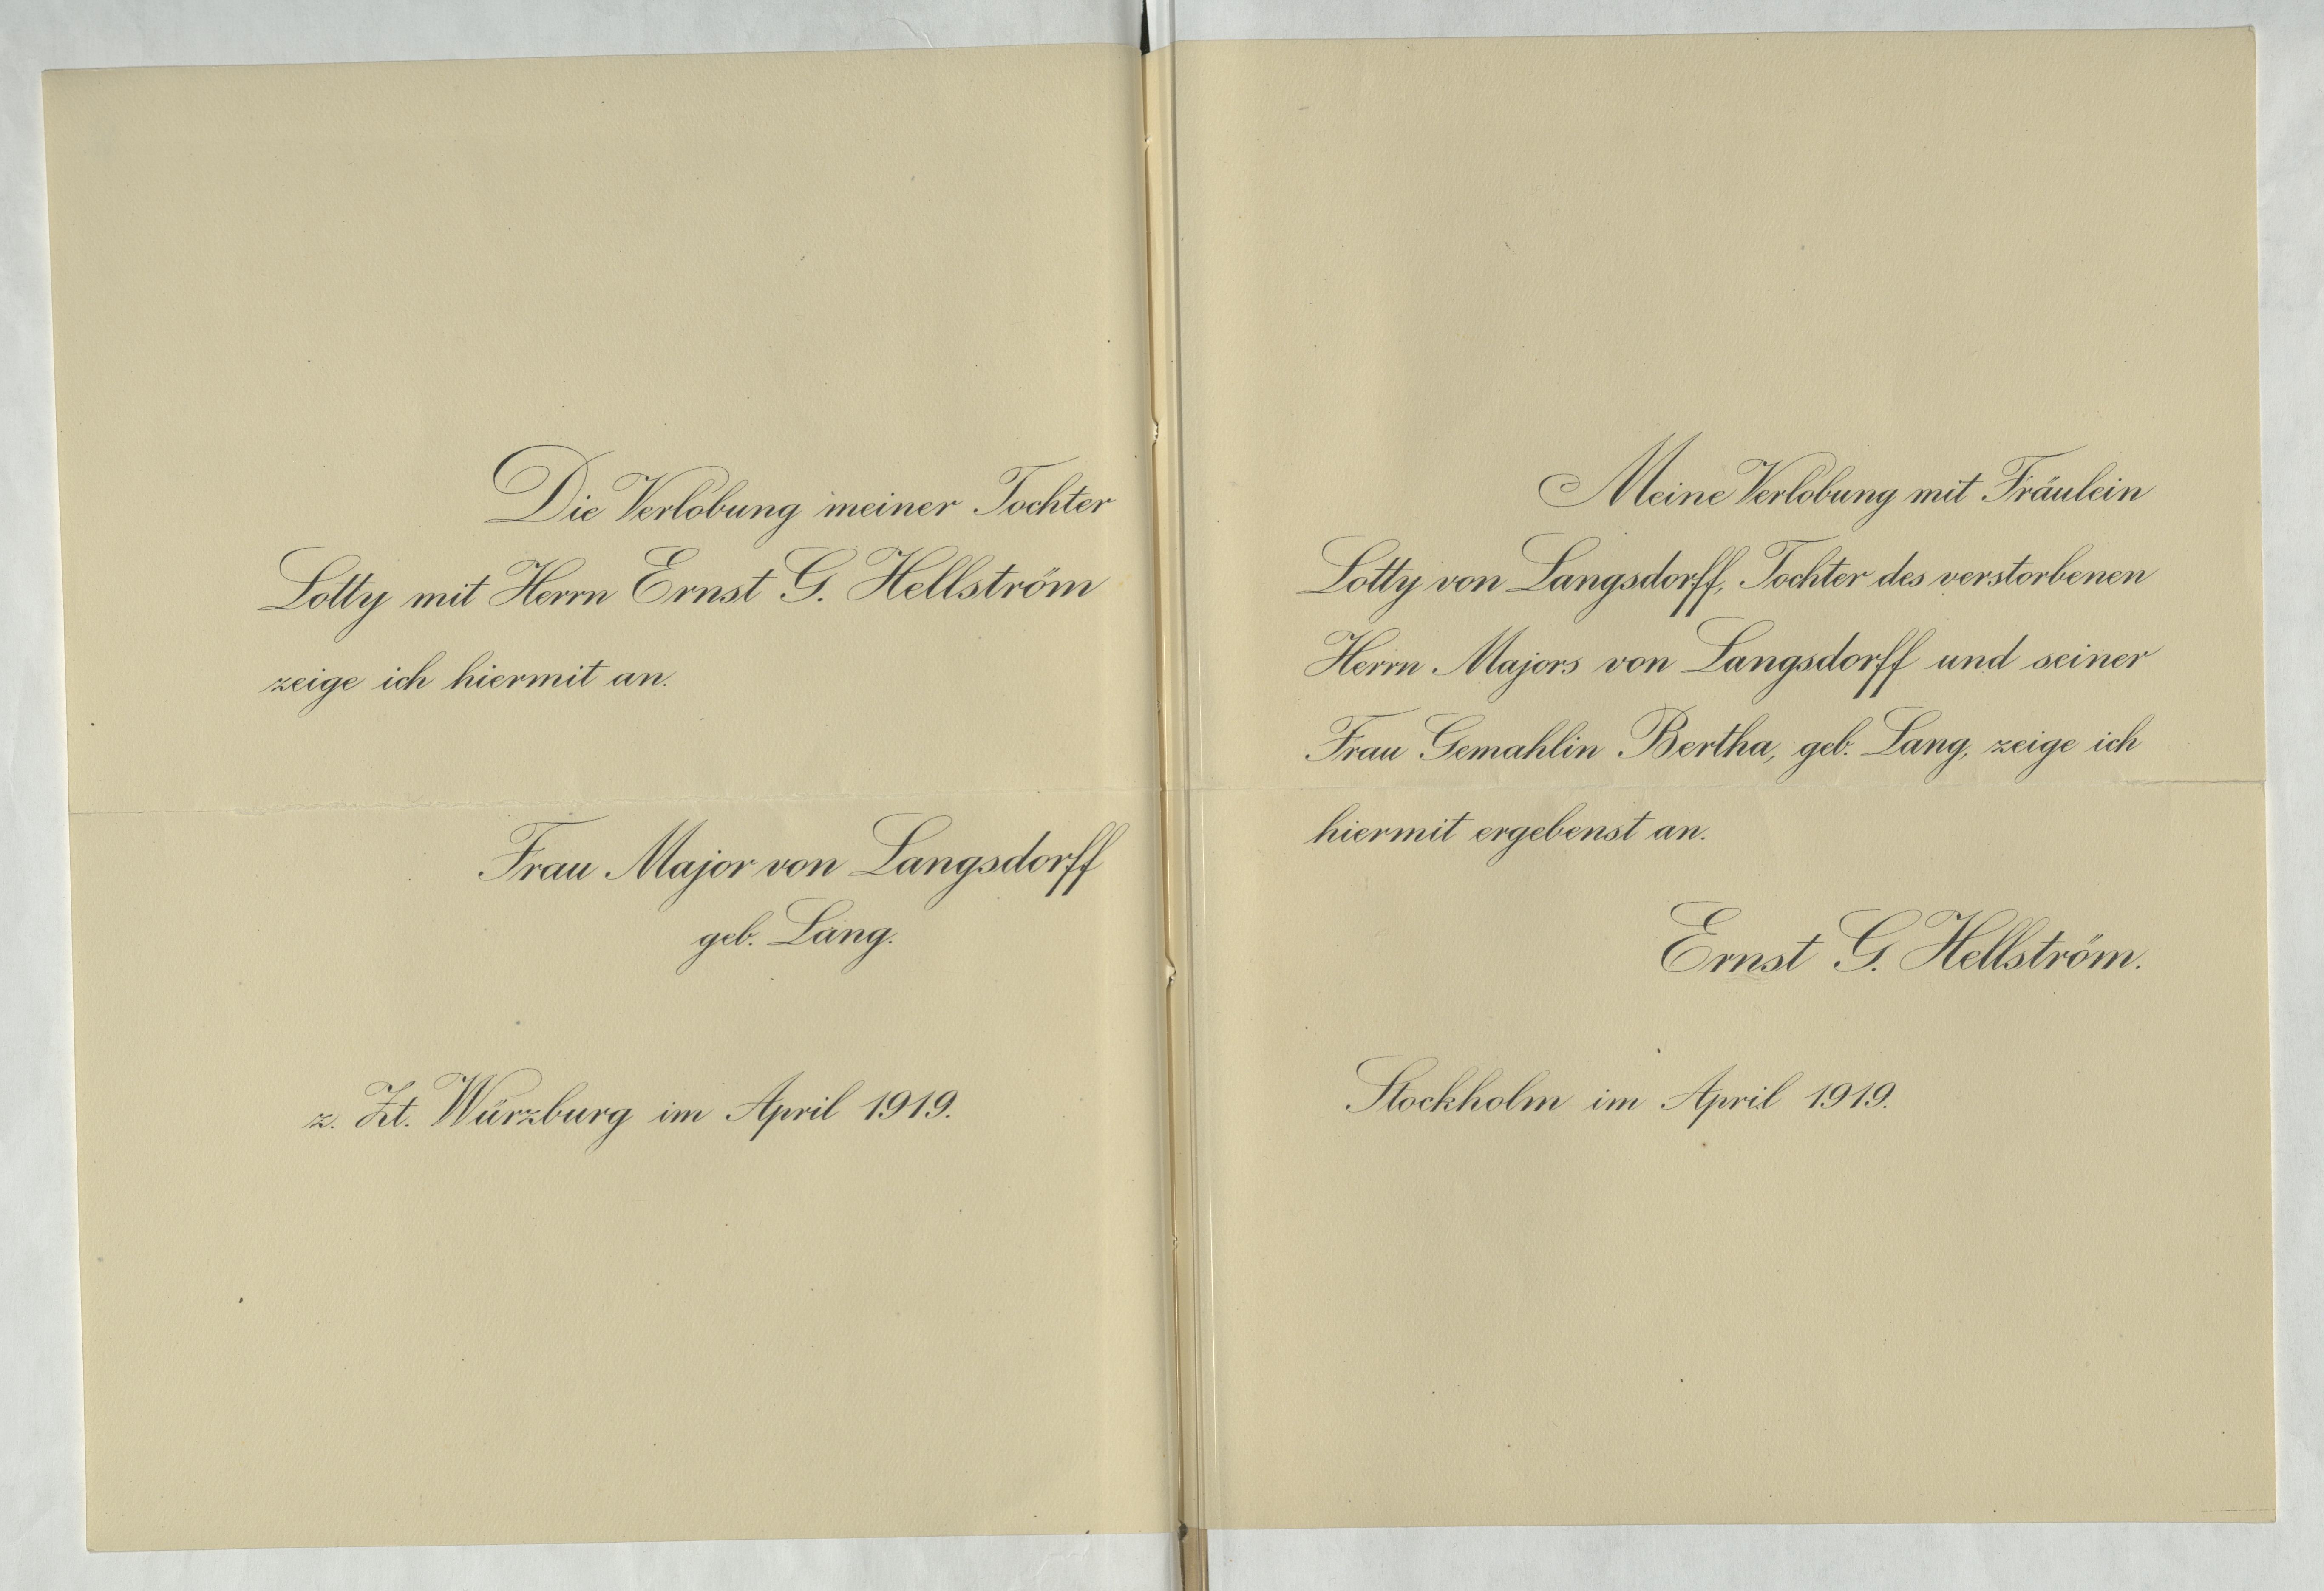 Die Verlobung meiner Tochter
Lotty mit Herrn Ernst G. Hellström
zeige ich hiermit an.
Frau Major von Langsdorff
geb. Lang.
z. Zt. Würzburg im April 1919.
Meine Verlobung mit Fräulein
Lotty von Langsdorff, Tochter des verstorbenen
Herrn Majors von Langsdorff und seiner
Frau Gemahlin Bertha, geb. Lang, zeige ich
hiermit ergebenst an.
Ernst G. Hellström.
Stockholm im April 1919.